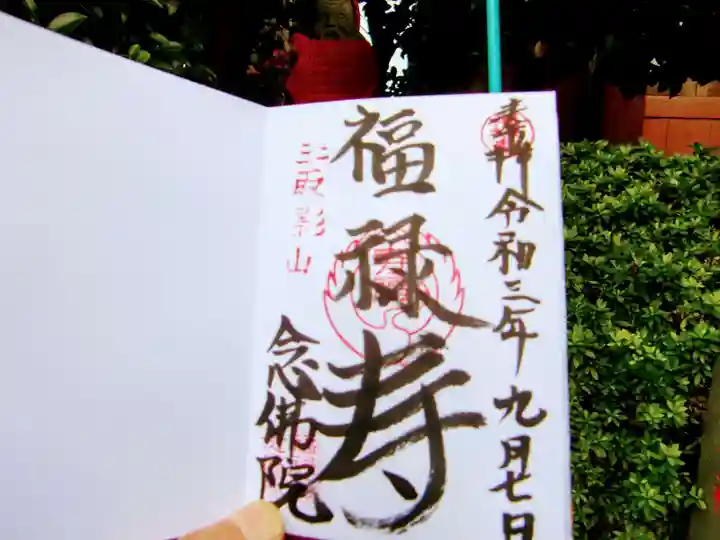 奉拝 令和三年 九月七日
福禄寿
影山
念佛院